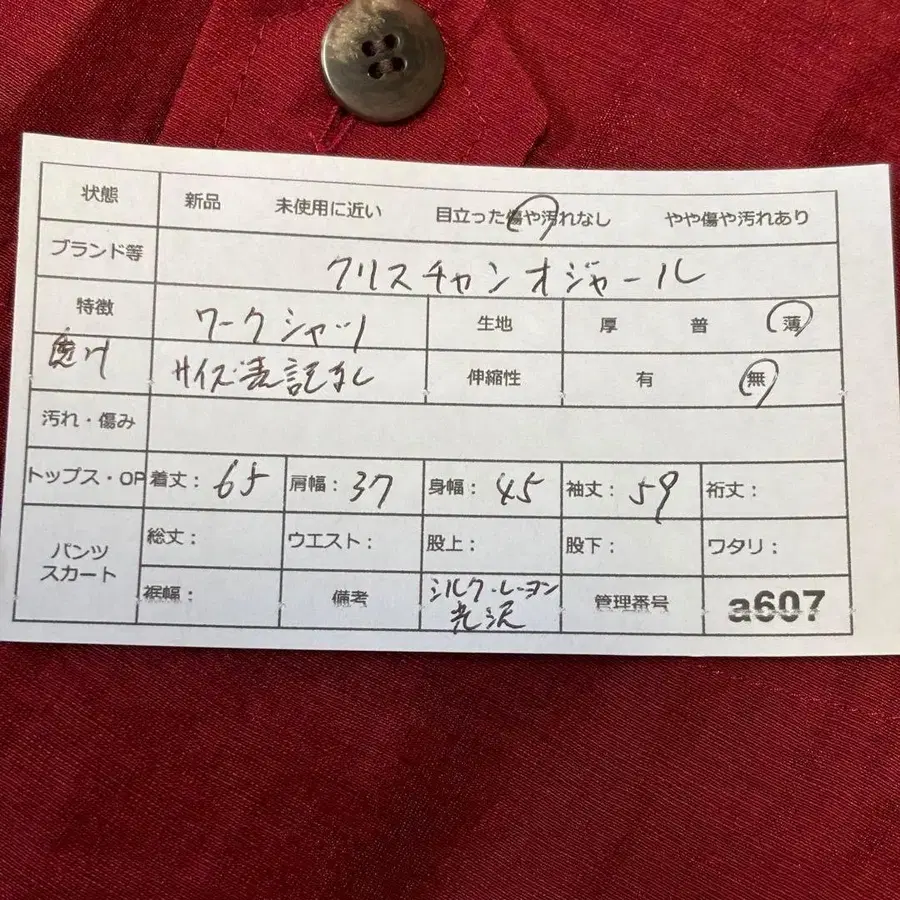 状態 新品 未使用に近い 目立った傷や汚れなし やや傷や汚れあり
ブランド等 クリスチャンオジャール
特徴 ワークシャツ 生地 厚 普 薄
サイズ表記なし 伸縮性 有 無
汚れ・傷み
トップス・OP 着丈: 65 肩幅: 37 身幅: 45 袖丈: 59 裄丈:
パンツ スカート 総丈: ウエスト: 股上: 股下: ワタリ:
裾幅: 備考 シルク・レーヨン 光沢 管理番号 a607